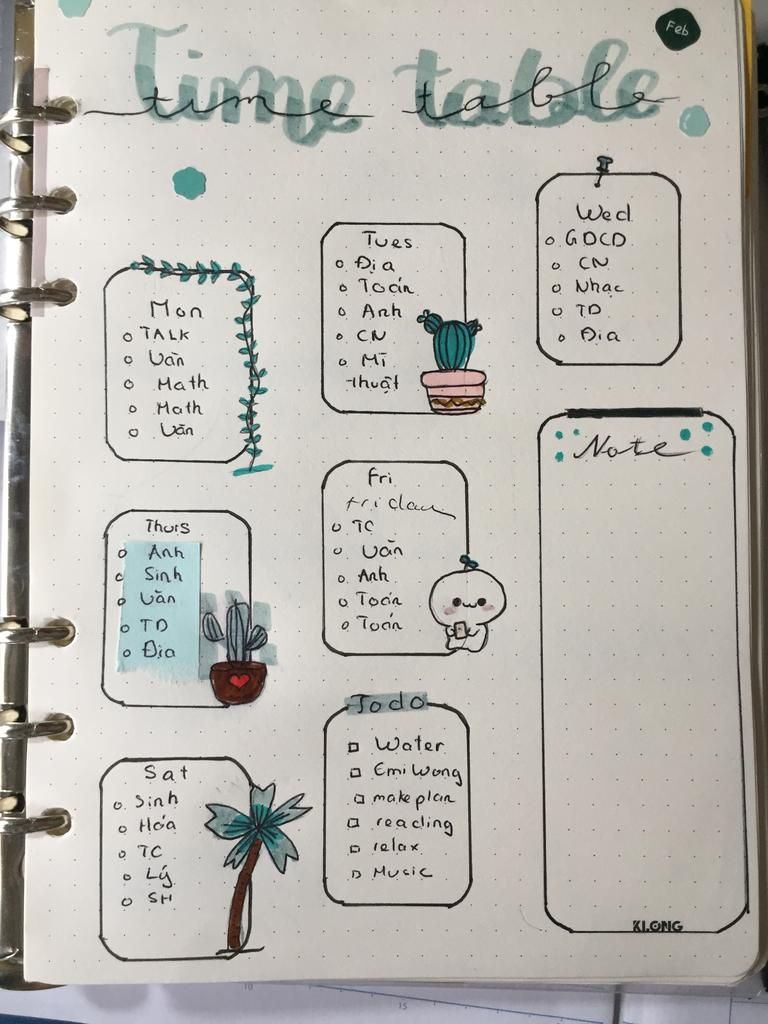 Feb
Time table
time table
Mon
TALK
Văn
Math
Math
Văn
Tues
Địa
Toán
Anh
CN
Mĩ
thuật
Wed
GDCD
CN
Nhạc
TD
Địa
Thurs
Anh
Sinh
Văn
TD
Địa
Fri
Friday
TC
Văn
Anh
Toán
Toán
Note
Sat
Sinh
Hóa
TC
Lý
SH
To do
Water
Emi Wong
make plan
reading
relax
Music
KLONG